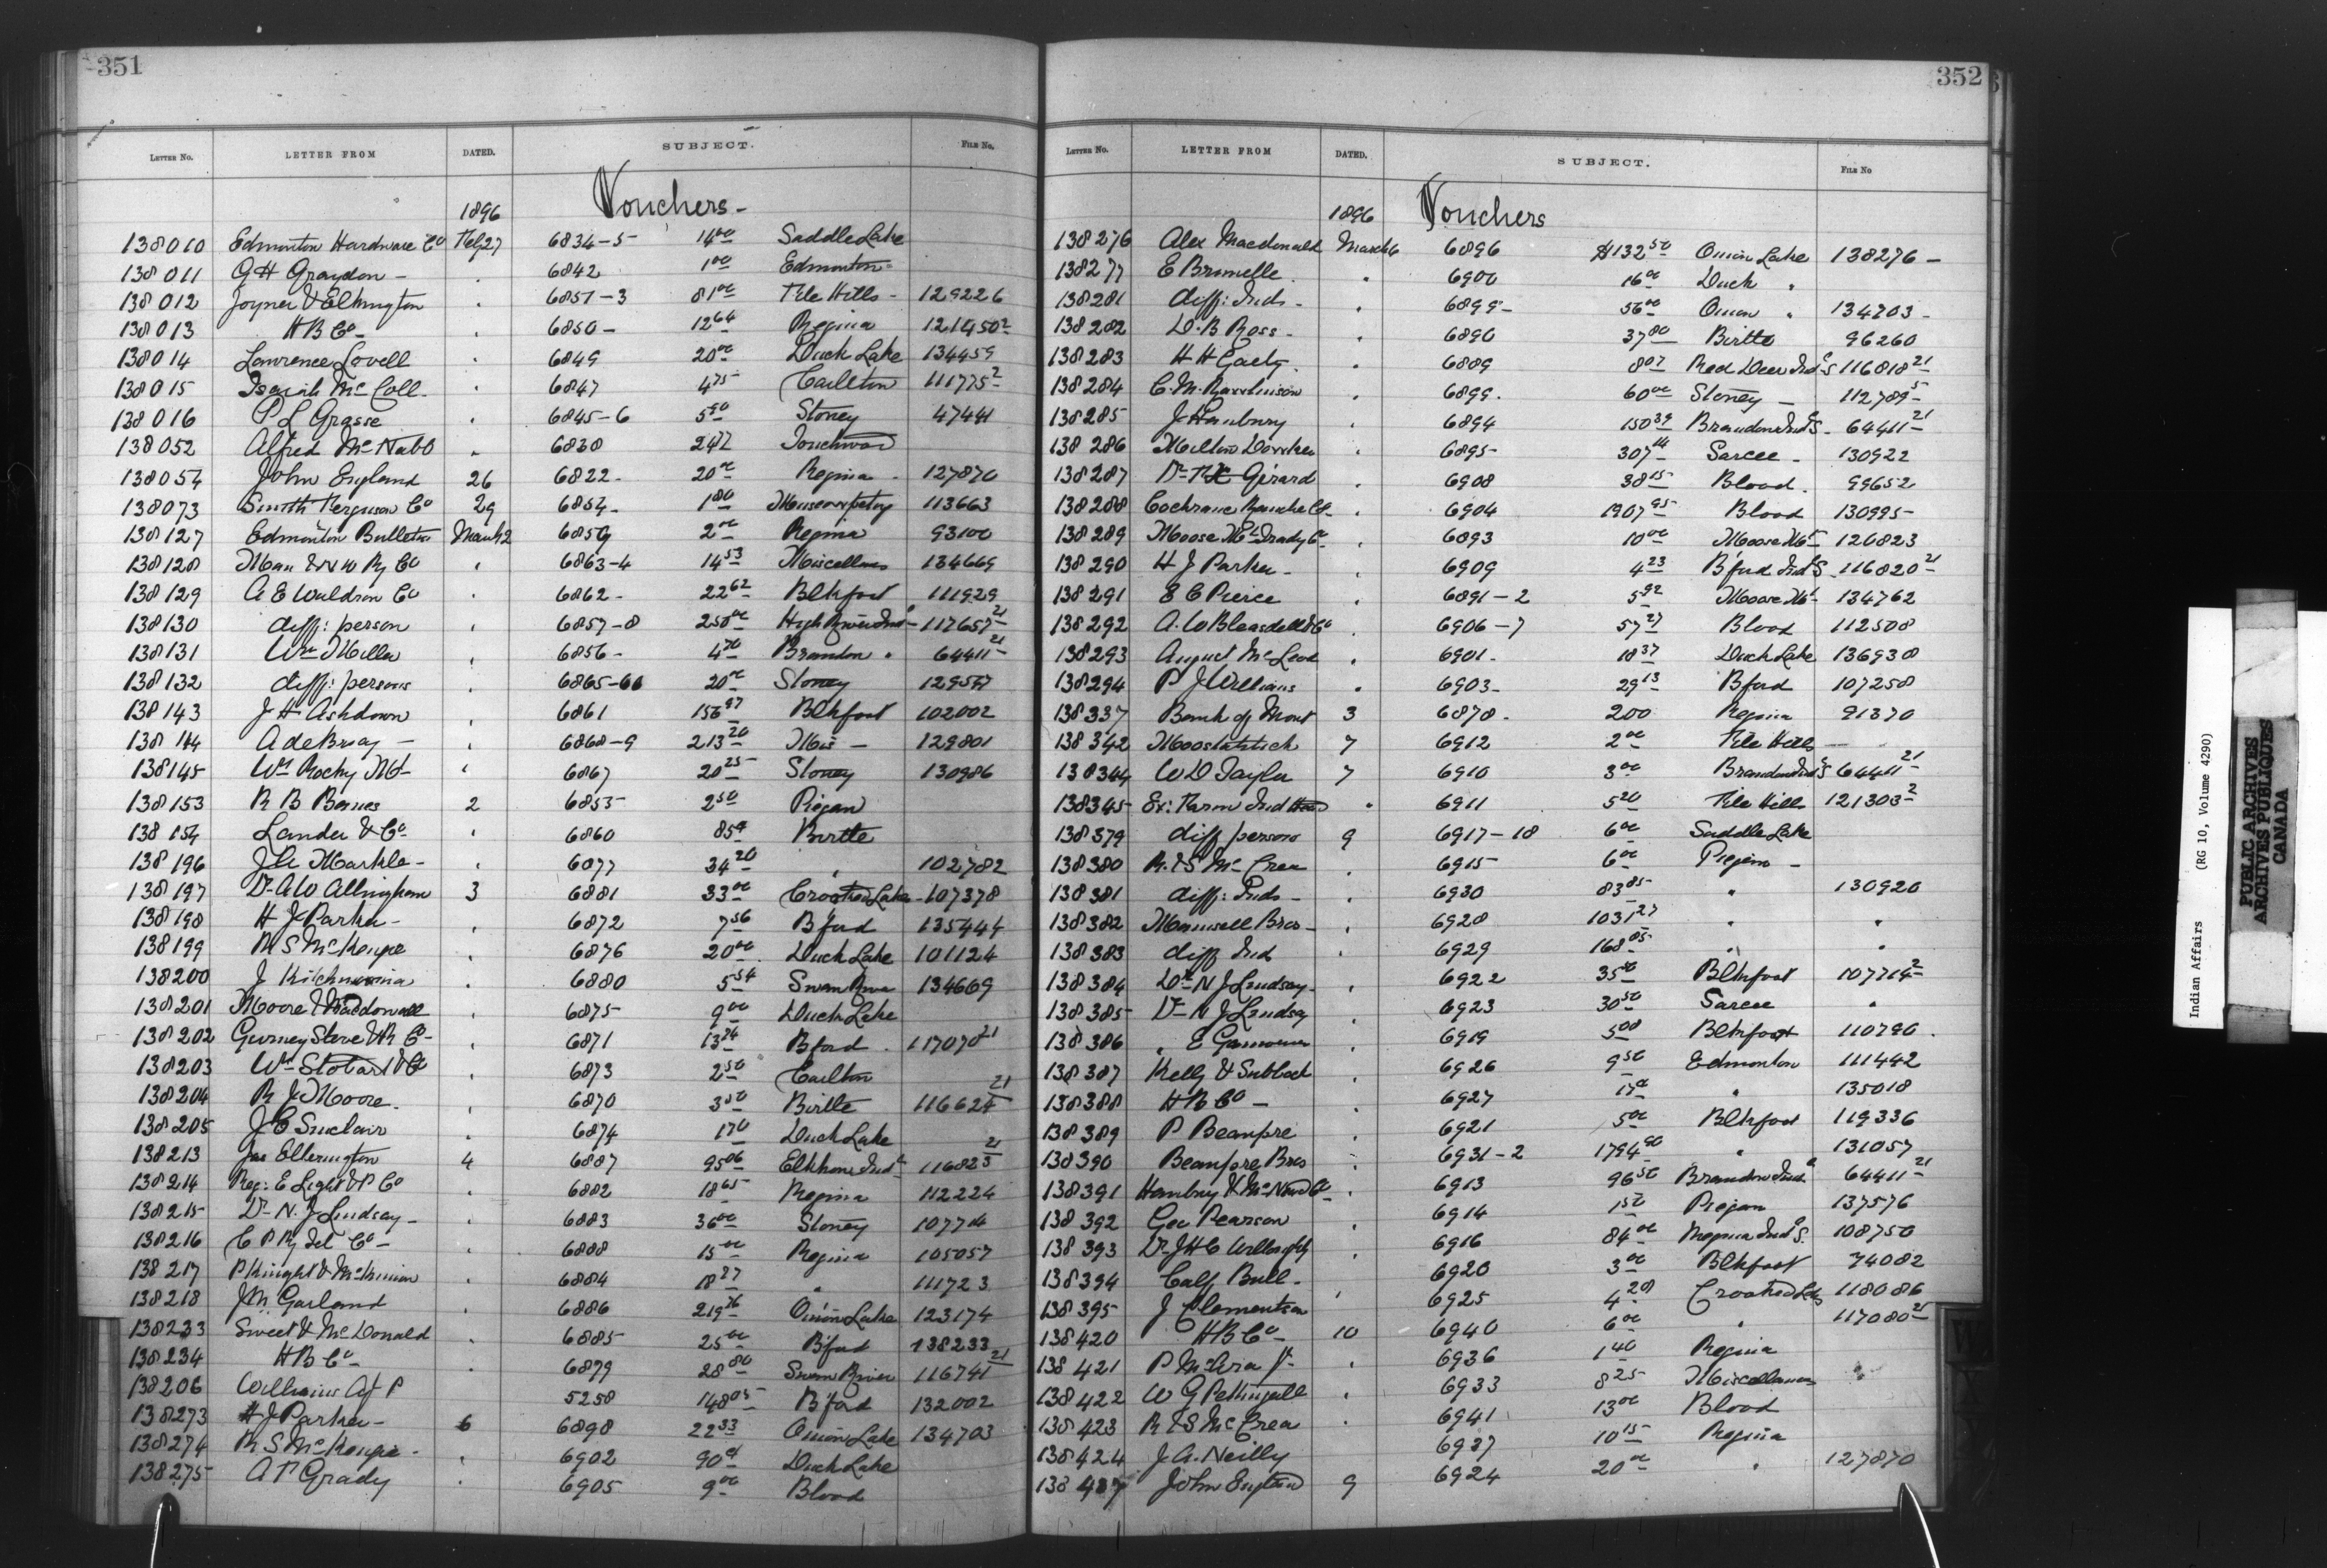 351
LETTER NO. LETTER FROM DATED. SUBJECT. FILE NO.
1896 Vouchers -
138010 Edmonton Hardware Co Feb 27 6834-5 14 00 Saddle Lake
138011 G H Graydon - " 6842 1 00 Edmonton -
138012 Joyner & Elkington " 6851-3 81 00 File Hills - 129226
138013 H B Co - " 6850 - 12 64 Regina 121450 2
138014 Lawrence Lovell " 6849 20 00 Duck Lake 134459
138015 Isaiah McColl - " 6847 4 75 Carlton 111775 2
138016 P L Grasse " 6845-6 5 90 Stoney 47441
138052 Alfred McNabb " 6830 24 72 Touchwood
138054 John England 26 6822 - 20 00 Regina - 127870
138073 Smith Ferguson Co 29 6854 - 1 80 113663
138127 Edmonton Bulletin March 2 6859 2 00 Regina 93100
138128 Man & N W Ry Co " 6863-4 14 53 Miscellans 134669
138129 A E Waldron Co " 6862 - 22 62 Blkfoot 111929
138130 diff: person " 6857-8 250 00 High River Ind 117657 21
138131 Wm Miller " 6856 - 4 70 Brandon " 64411 21
138132 diff: persons " 6865-66 20 00 Stoney
138143 J H Ashdown " 6861 156 97 Blkfoot 102002
138144 A de Bray - " 6868-9 213 20 Mis - 129801
138145 Wm Rocky Mt - " 6867 20 25 Stoney 130986
138153 R B Barnes 2 6855 2 50 Piegan
138154 Lander & Co " 6860 Birtle
138196 J A Markle - " 6877 34 20 " 102782
138197 Dr A W Allingham 3 6881 33 00 Crooked Lake - 107378
138198 H J Parker - " 6872 7 56 B'ford 135444
138199 R S McKenzie " 6876 20 00 Duck Lake 101124
138200 J " 6880 5 54 Swan River 134669
138201 Moore & Macdowall " 6875 9 00 Duck Lake
138202 Gurney Stove & R Co - " 6871 B'ford - 117078 21
138203 Wm Stobart & Co " 6873 2 50 Carlton
138204 R J Moore - " 6870 3 50 Birtle 116624 21
138205 J C Sinclair " 6874 1 70 Duck Lake
138213 Jas Ellerington 4 6887 95 06 Elkhorn Ind 116823 21
138214 Reg: E Light & P Co " 6882 18 65 Regina 112224
138215 Dr N. J Lindsay - " 6883 36 00 Stoney
138216 C P Ry Tel Co - " 6888 15 00 Regina 105057
138217 P Knight & McKinnon " 6884 18 27 " 111723
138218 J M Garland " 6886 219 76 Onion Lake 123174
138233 Sweet & McDonald " 6885 25 00 B'ford 138233
138234 H B Co - " 6879 28 80 Swan River 116741 21
138206 Williams A J P 5258 148 05 B'ford 132002
138273 H J Parker - 6 6898 22 33 Onion Lake 134703
138274 R S McKenzie - " 6902 90 Duck Lake
138275 A P Grady " 6905 9 00 Blood
352
LETTER NO. LETTER FROM DATED. SUBJECT. FILE NO
1896 Vouchers
138276 Alex Macdonald March 6 6896 $132 50 Onion Lake 138276 -
138277 E Brunelle " 6900 16 00 Duck "
138281 diff: Inds - " 6899 - 56 00 Onion " 134703 -
138282 D. B Ross - " 6890 37 80 Birtle 96260
138283 H H Gaetz - " 6889 8 07 Red Deer Ind S 116818 21
138284 C. M. Rawlinson " 6899 - 60 00 Stoney - 112789 5
138285 J Hanbury " 6894 150 39 Brandon Ind S - 64411 21
138286 Milton " 6895 - 307 14 Sarcee - 130922
138287 Dr Girard " 6908 38 15 Blood - 99652
138288 Cochrane Ranche Co - " 6904 1907 95 Blood 130995 -
138289 Moose Mt Trady Co " 6893 10 00 Moose Mt 126823
138290 H J Parker - " 6909 4 23 B'ford Ind S - 116820 21
138291 E C Pierce " 6891-2 5 92 Moose Mt - 134762
138292 A. W Bleasdell & Co " 6906-7 57 27 Blood 112508
138293 August McLeod " 6901 - 18 37 Duck Lake 136938
138294 P J Williams " 6903 - 29 13 B'ford 107258
138337 Bank of Mont 3 6878 - 200 Regina 91370
138342 7 6912 2 00 File Hills -
138344 W D Taylor 7 6910 3 00 Brandon Ind S 64411 21
138345 Ex: Farm Ind Head " 6911 5 20 File Hills 121303 2
138379 diff persons 9 6917-18 6 00 Saddle Lake
138380 R. & S McCrea " 6915 6 00 Piegan -
138381 diff: Inds - " 6930 83 85 " 130920
138382 Maunsell Bros - " 6928 1031 27 " "
138383 diff Ind " 6929 168 05 " "
138384 Dr N J Lindsay - " 6922 35 50 Blkfoot 107714 2
138385 Dr N J Lindsay " 6923 30 50 Sarcee "
138386 " E " 6919 5 00 Blkfoot 110796 -
138387 Kelly & " 6926 9 50 Edmonton 111442
138388 H B Co - " 6927 " 135018
138389 P Beaupre " 6921 5 00 Blkfoot 119336
138390 Beaupre Bros " 6931-2 1794 90 " 131057
138391 Hanbury & McNea Co " 6913 96 50 Brandon Ind 64411 21
138392 Geo Pearson " 6914 1 50 Piegan 137576
138393 Dr J H C Willoughby " 6916 84 00 Regina Ind S. 108750
138394 Calf Bull - 6920 3 00 Blkfoot 74082
138395 J Clementson " 6925 4 20 Crooked Lks 118086
138420 H B Co - 10 6940 6 00 " 117080 21
138421 P McAra Jr - " 6936 1 40 Regina
138422 W G Pettingell " 6933 8 25 Miscellaneous
138423 R & S McCrea " 6941 13 00 Blood
138424 J A. Neilly 6937 10 15 Regina
138437 John England 9 6924 20 00 " 127870
Indian Affairs (RG 10, Volume 4290)
PUBLIC ARCHIVES
ARCHIVES PUBLIQUES
CANADA